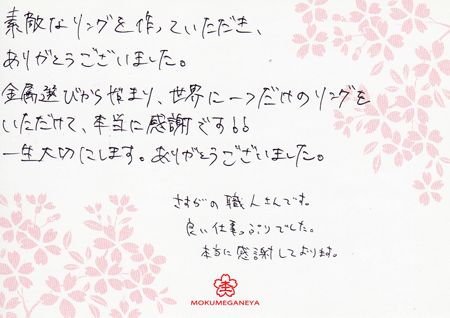 素敵なリングを作っていただき、
ありがとうございました。
金属選びから始まり、世界に一つだけのリングを
いただけて、本当に感謝です!!
一生大切にします。ありがとうございました。
さすがの職人さんです。
良い仕事っぷりでした。
本当に感謝しております。
MOKUMEGANEYA